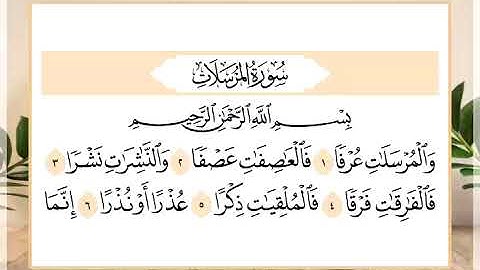 سُورَةُ المُرْسَلَاتِ
بِسْمِ اللَّهِ الرَّحْمَٰنِ الرَّحِيمِ
وَالْمُرْسَلَاتِ عُرْفًا ١ فَالْعَاصِفَاتِ عَصْفًا ٢ وَالنَّاشِرَاتِ نَشْرًا ٣
فَالْفَارِقَاتِ فَرْقًا ٤ فَالْمُلْقِيَاتِ ذِكْرًا ٥ عُذْرًا أَوْ نُذْرًا ٦ إِنَّمَا